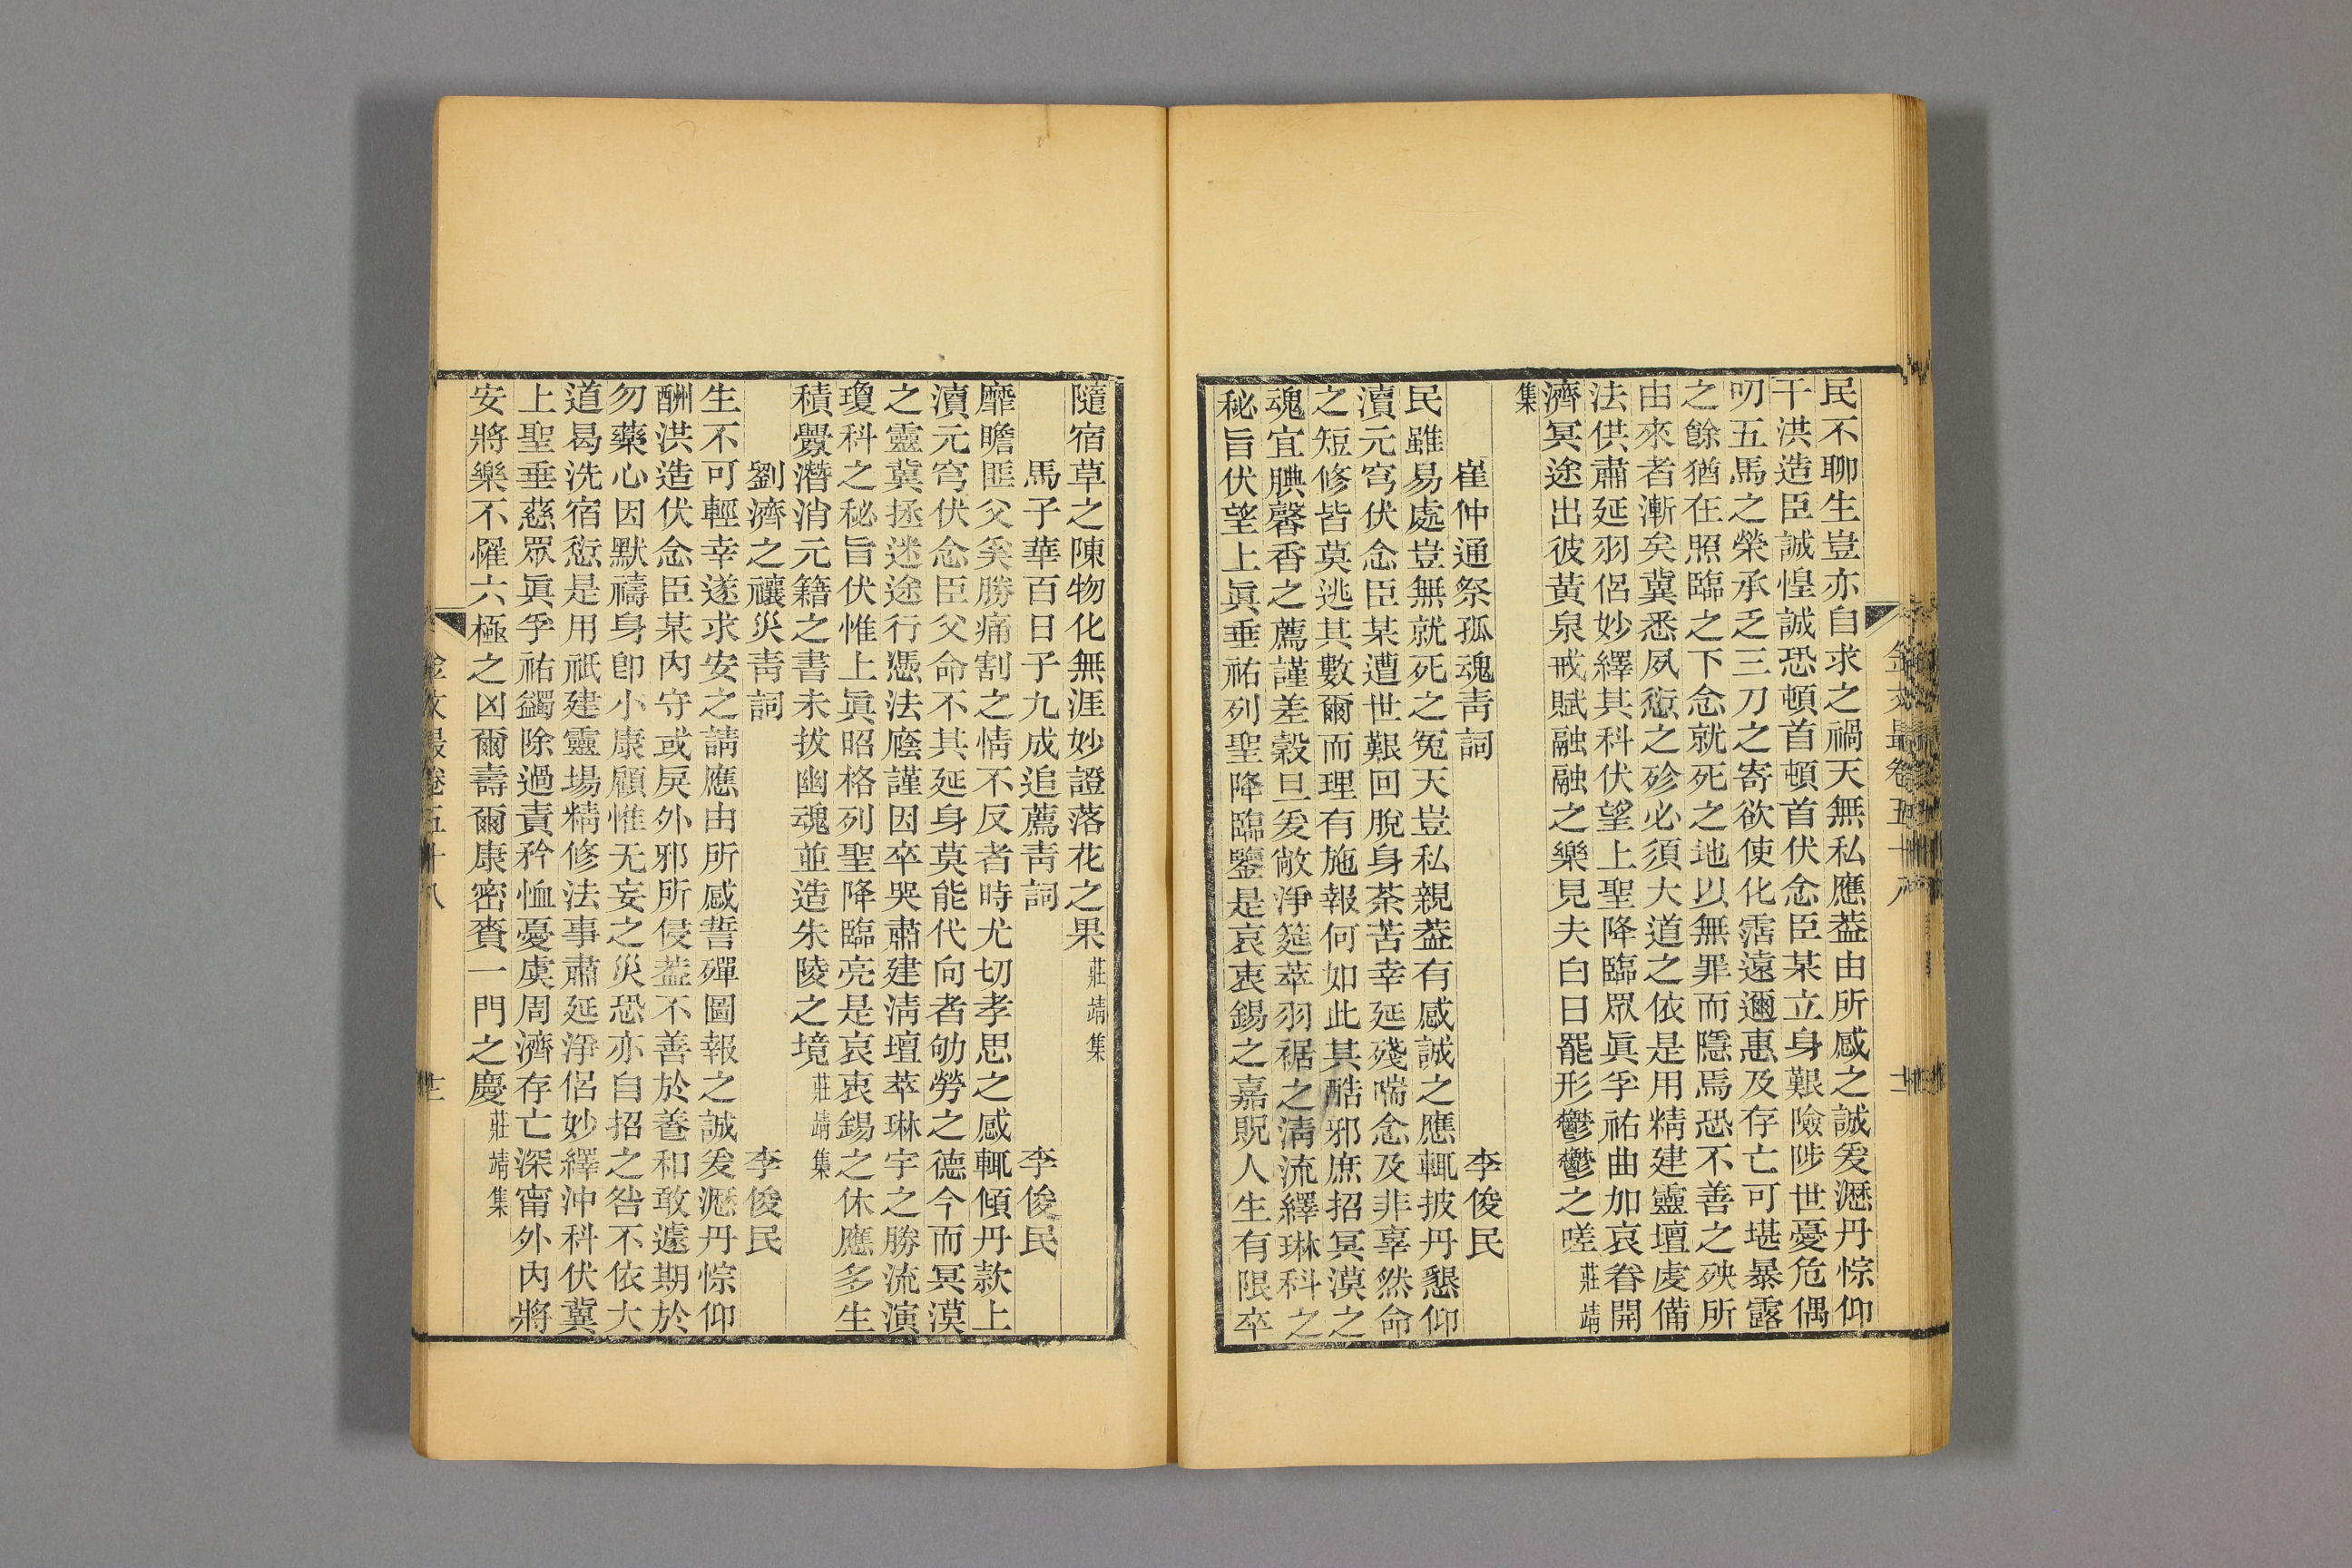 民不聊生豈亦自求之禍天無私應葢由所感之誠爰瀝丹悰仰
干洪造臣誠惶誠恐頓首頓首伏念臣某立身艱險陟世憂危偶
叨五馬之榮承乏三刀之寄欲使化霑遠邇惠及存亡可堪暴露
之餘猶在照臨之下念就死之地以無罪而隱焉恐不善之殃所
由來者漸矣冀悉夙愆之殄必須大道之依是用精建靈壇虔備
法供肅延羽侶妙繹其科伏望上聖降臨眾眞孚祐曲加哀眷開
濟冥途出彼黃泉戒賦融融之樂見夫白日罷形鬱鬱之嗟莊靖
集
崔仲通祭孤魂靑詞 李俊民
民雖易處豈無就死之冤天豈私親葢有感誠之應輒披丹懇仰
瀆元穹伏念臣某遭世艱回脫身荼苦幸延殘喘念及非辜然命
之短修皆莫逃其數爾而理有施報何如此其酷邪庶招冥漠之
魂宜腆馨香之薦謹差穀旦爰敞淨筵萃羽裾之淸流繹琳科之
秘旨伏望上眞垂祐列聖降臨鑒是哀衷錫之嘉貺人生有限卒
隨宿草之陳物化無涯妙證落花之果莊靖集
馬子華百日子九成追薦靑詞 李俊民
靡瞻匪父奚勝痛割之情不反者時尤切孝思之感輒傾丹款上
瀆元穹伏念臣父命不其延身莫能代向者劬勞之德今而冥漠
之靈冀拯迷途行憑法廕謹因卒哭肅建淸壇萃琳宇之勝流演
瓊科之秘旨伏惟上眞昭格列聖降臨亮是哀衷錫之休應多生
積釁潛消元籍之書未拔幽魂並造朱陵之境莊靖集
劉濟之禳災靑詞 李俊民
生不可輕幸遂求安之請應由所感誓殫圖報之誠爰瀝丹悰仰
酬洪造伏念臣某內守或戾外邪所侵葢不善於養和敢遽期於
勿藥心因默禱身卽小康顧惟无妄之災恐亦自招之咎不依大
道曷洗宿愆是用祇建靈場精修法事肅延淨侶妙繹沖科伏冀
上聖垂慈眾眞孚祐蠲除過責矜恤憂虞周濟存亡深甯外內將
安將樂不罹六極之凶爾壽爾康密賚一門之慶莊靖集
金文最卷五十八